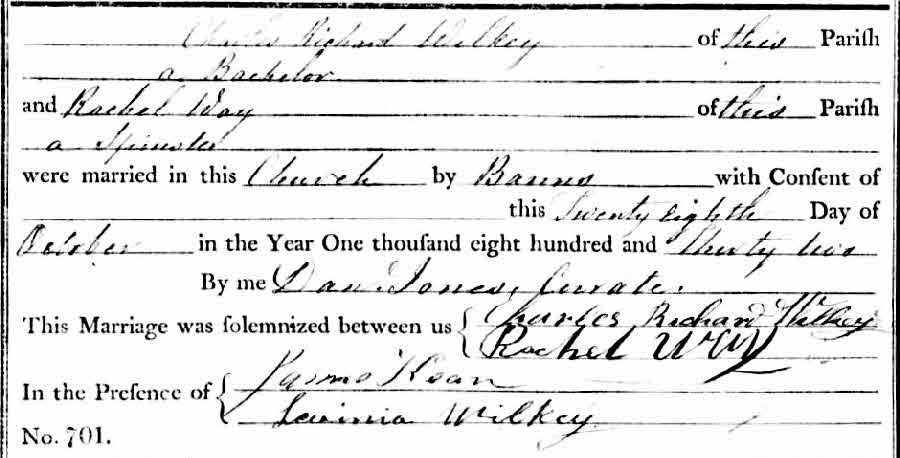 Charles Richard Wilkey of this Parish
a Bachelor
and Rachel Way of this Parish
a Spinster
were married in this Church by Banns with Consent of
this Twenty eighth Day of
October in the Year One thouſand eight hundred and thirty two
By me Dan Jones, Curate.
This Marriage was ſolemnized between us Charles Richard Wilkey
Rachel Way
In the Preſence of
Lavinia Wilkey
No. 701.